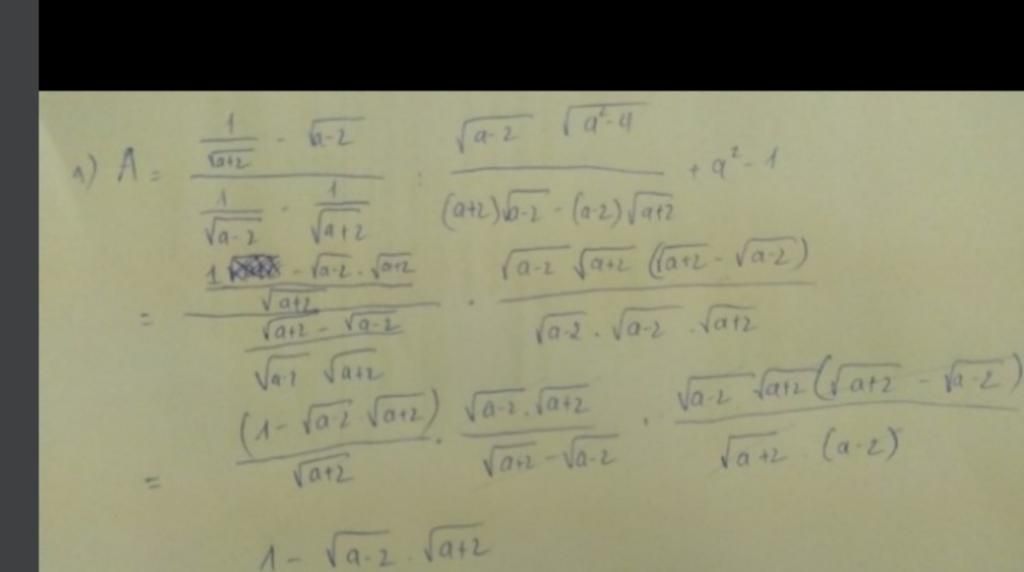 a) A = (1/√(a+2) - √(a-2)) / (1/√(a-2) - 1/√(a+2)) : (√(a-2) √(a²-4)) / ((a+2)√(a-2) - (a-2)√(a+2)) + a² - 1
= ((1 - √(a-2) . √(a+2)) / √(a+2)) / ((√(a+2) - √(a-2)) / (√(a-2) √(a+2))) . (√(a-2) √(a+2) (√(a+2) - √(a-2))) / (√(a-2) . √(a-2) . √(a+2))
= (1 - √(a-2) √(a+2)) / √(a+2) . (√(a-2) . √(a+2)) / (√(a+2) - √(a-2)) . (√(a-2) √(a+2) (√(a+2) - √(a-2))) / (√(a+2) . (a-2))
1 - √(a-2) . √(a+2)